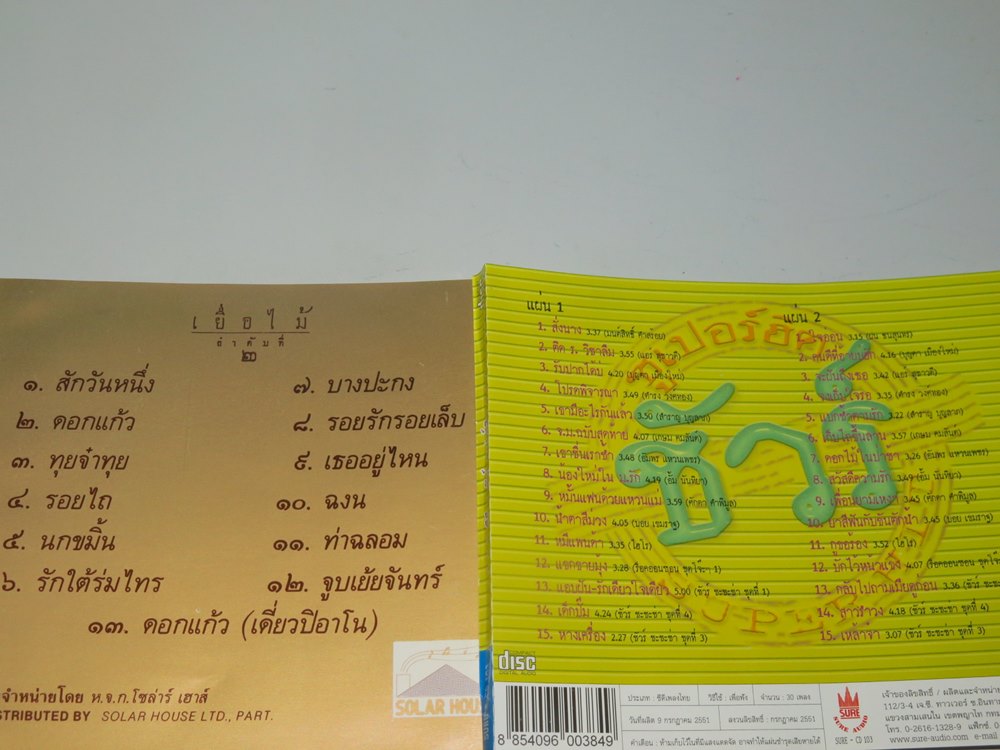 เยื่อไม้
ลำดับที่
๒
๑. สักวันหนึ่ง
๒. ดอกแก้ว
๓. ทุยจ๋าทุย
๔. รอยไถ
๕. นกขมิ้น
๖. รักใต้ร่มไทร
๗. บางปะกง
๘. รอยรักรอยเล็บ
๙. เธออยู่ไหน
๑๐. ฉงน
๑๑. ท่าฉลอม
๑๒. จูบเย้ยจันทร์
๑๓. ดอกแก้ว (เดี่ยวปิอาโน)
จำหน่ายโดย ห.จ.ก.โซล่าร์ เฮาส์
STRIBUTED BY SOLAR HOUSE LTD., PART.
SOLAR HOUS
ซุปเปอร์ฮิต
ชัวร์
แผ่น 1
1. สั่งนาง 3.37 (มนต์สิทธิ์ คำสร้อย)
2. ติด ร. วิชาลืม 3.55
3. รับปากได้บ่ 4.20
4. โปรดพิจารณา 3.49
5. เขามีอะไรกันแล้ว 3.50
6. จ.ม.ฉบับสุดท้าย 4.07
7. เขาชื่นเราช้ำ 3.48 (อัมพร แหวนเพชร)
8. น้องใหม่ใน ม.รัก 4.19
9. หมั้นแฟนด้วยแหวนแม่ 3.59 (ศักดา คำพิมูล)
10. น้ำตาสีม่วง 4.05 (บอย เขมราฐ)
11. หมีแพนด้า 3.35 (ไฮโร)
12. แขกขายมุ้ง 3.28 (ร็อคออนซอน ชุดโจ๊ะๆ 1)
13. แอบฝัน-รักเดียวใจเดียว 5.00 (ชัวร์ ชะชะช่า ชุดที่ 1)
14. เด็กปั๊ม 4.24 (ชัวร์ ชะชะช่า ชุดที่ 4)
15. หางเครื่อง 2.27 (ชัวร์ ชะชะช่า ชุดที่ 3)
แผ่น 2
1. ใจอ่อน 3.15
2. คนดีที่อายบอก 4.16
3. จะฝันถึงเธอ 3.42
4. 3.35
5. 3.22
6. 3.57
7. ดอกไม้ในป่าช้า 3.26 (อัมพร แหวนเพชร)
8. สวัสดีความรัก 3.49
9. เพื่อนยามเหงา 3.45 (ศักดา คำพิมูล)
10. 3.45 (บอย เขมราฐ)
11. 3.52 (ไฮโร)
12. บักไข้หนาวแข่ง 4.07
13. กลับไปถามเมียดูก่อน 3.36
14. ลาวรำวง 4.18 (ชัวร์ ชะชะช่า ชุดที่ 4)
15. เหล้าจ๋า 3.07 (ชัวร์ ชะชะช่า ชุดที่ 3)
COMPACT
disc
DIGITAL AUDIO
8 854096 003849
ประเภท : ซีดีเพลงไทย วิธีใช้ : เพื่อฟัง จำนวน : 30 เพลง
วันที่ผลิต 9 กรกฎาคม 2551 สงวนลิขสิทธิ์ : กรกฎาคม 2551
คำเตือน : ห้ามเก็บไว้ในที่มีแสงแดดจัด อาจทำให้แผ่นชำรุดเสียหายได้
SURE
SURE AUDIO
SURE - CD 103
เจ้าของลิขสิทธิ์ / ผลิตและจำหน่าย
112/3-4 เจ.ซี. ทาวเวอร์ ซ.อินทาม
แขวงสามเสนใน เขตพญาไท กทม
โทร. 0-2616-1328-9 แฟ็กซ์. 0-2
www.sure-audio.com e-mail